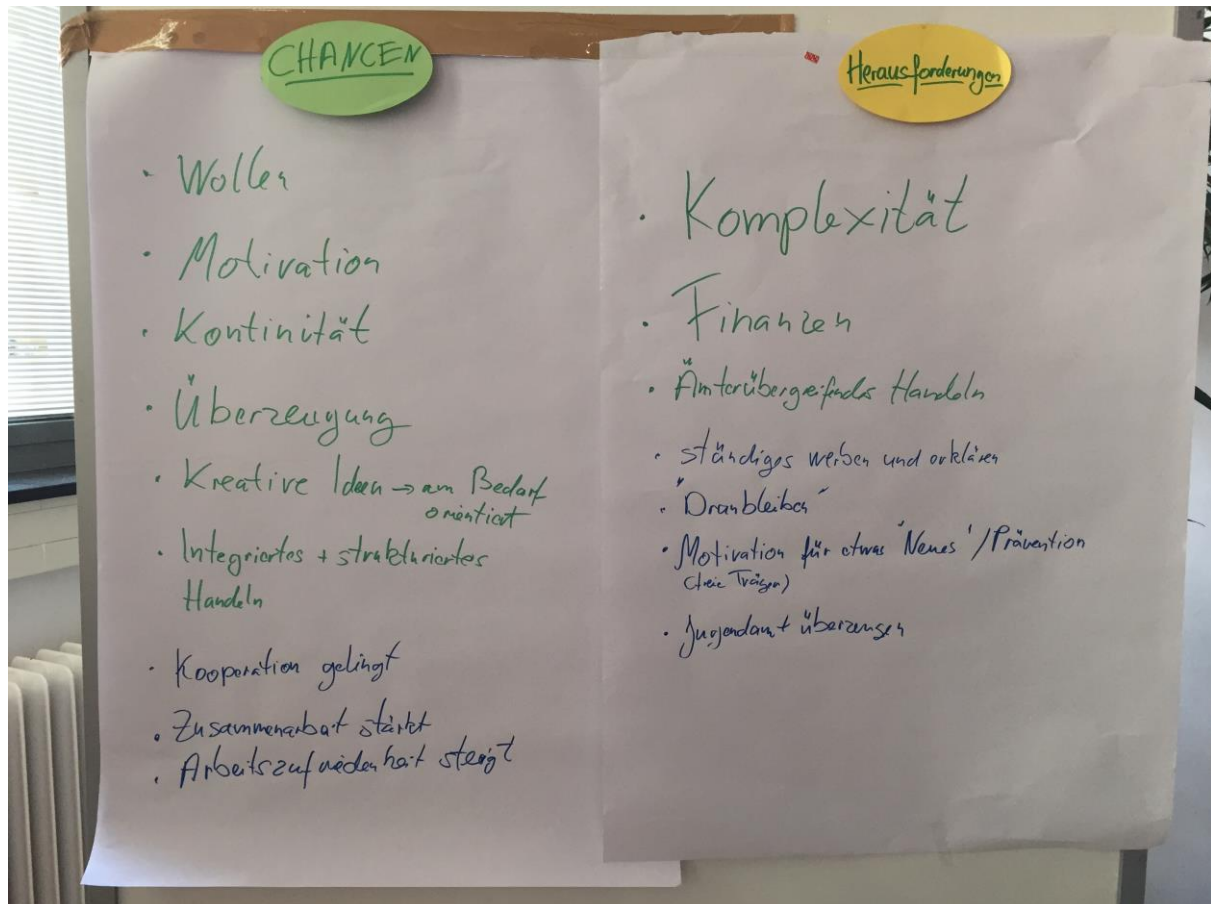 CHANCEN
· Wollen
· Motivation
· Kontinität
· Überzeugung
· Kreative Ideen → am Bedarf
orientiert
· Integriertes + strukturiertes
Handeln
· Kooperation gelingt
· Zusammenarbeit stärkt
· Arbeitszufriedenheit steigt
Herausforderungen
· Komplexität
· Finanzen
· Ämterübergreifendes Handeln
· ständiges werben und erklären
· "Dranbleiben"
· Motivation für etwas 'Neues' / Prävention
(freie Träger)
· Jugendamt überzeugen